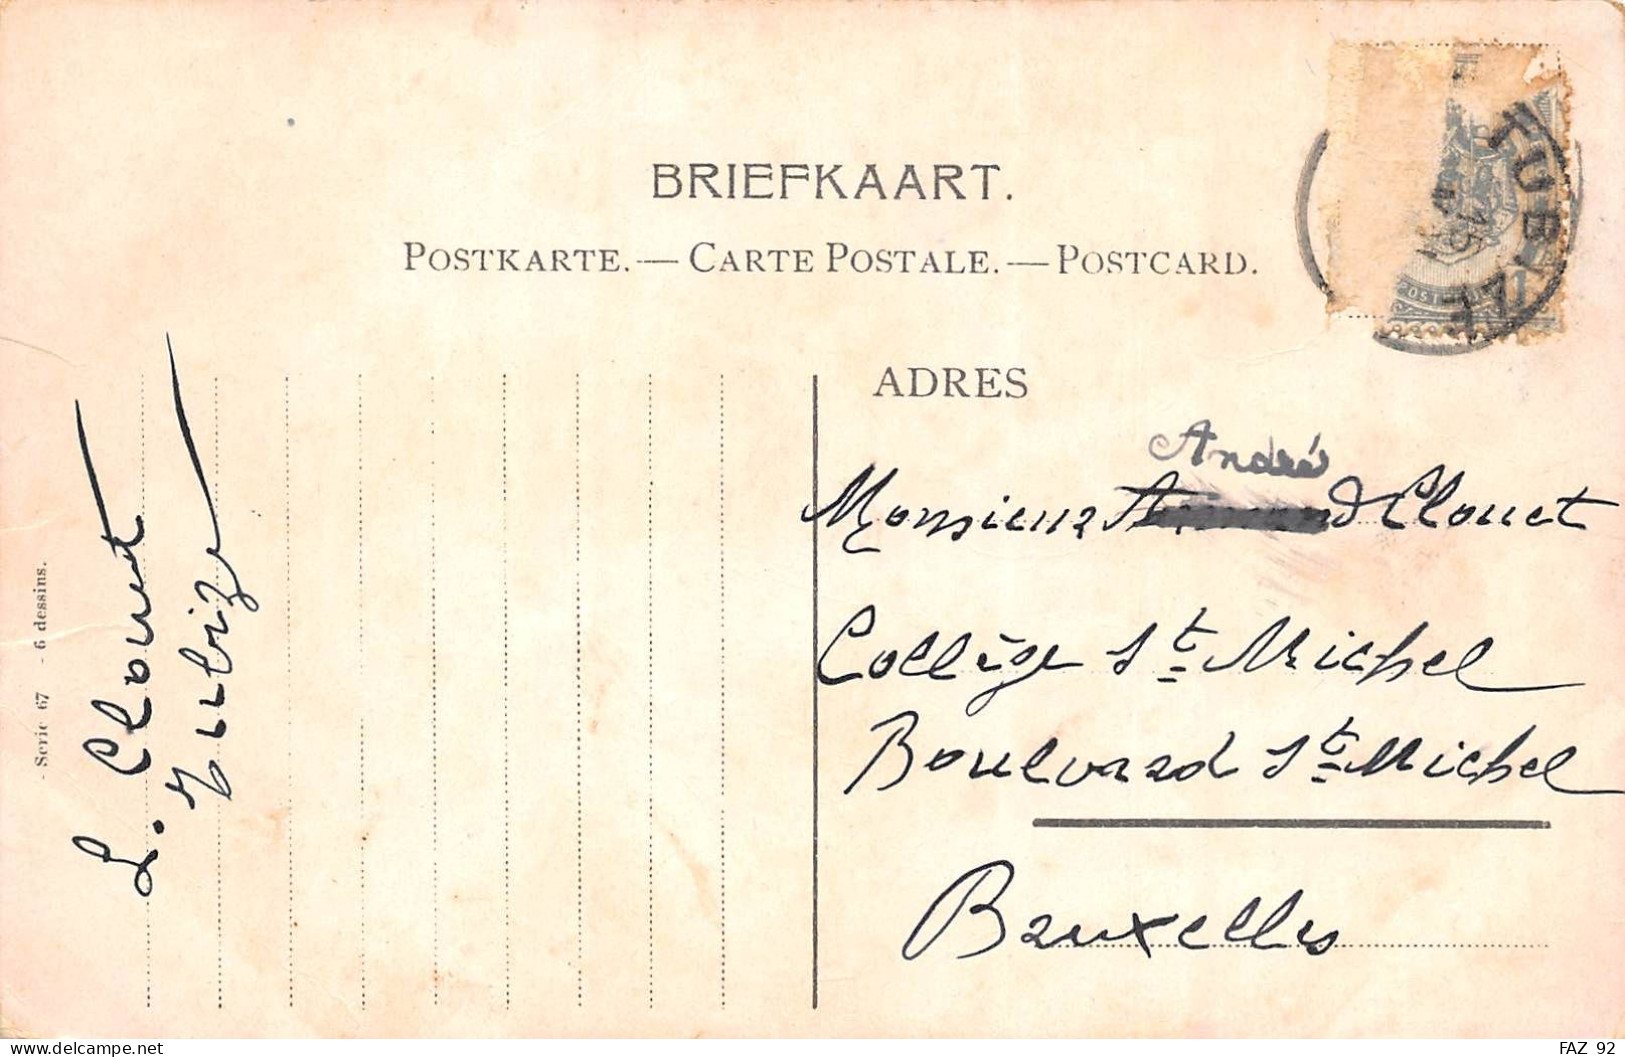 BRIEFKAART.
POSTKARTE. — CARTE POSTALE. — POSTCARD.
TUBIZE
POST
1
ADRES
André
Monsieur Clouet
Collège St Michel
Boulevard St Michel
Bruxelles
L. Clouet
Tubize
- Serie 67 - 6 dessins.
delcampe.net
FAZ_92